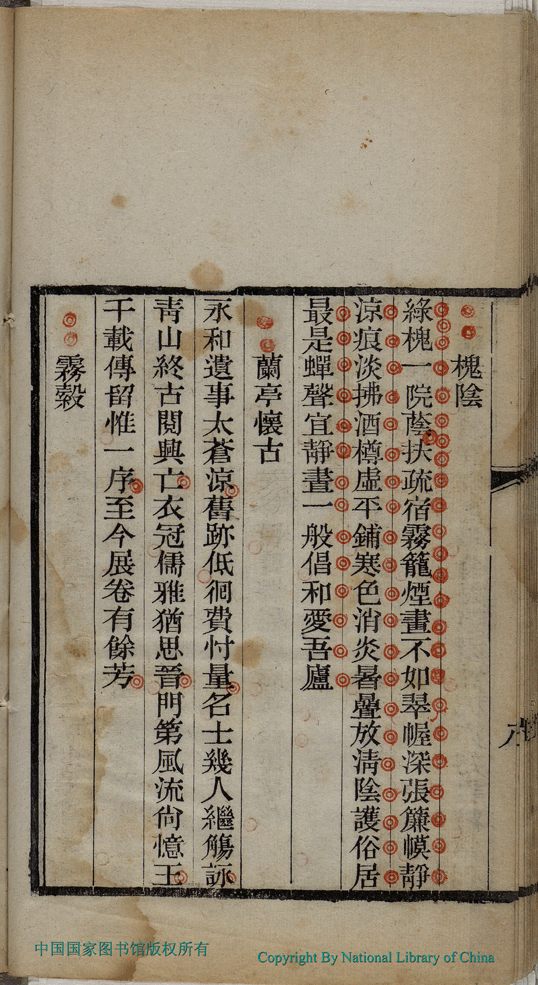 槐陰
綠槐一院蔭扶疏宿霧籠煙畫不如翠幄深張簾幙靜
涼痕淡拂酒樽虛平鋪寒色消炎暑疊放清陰護俗居
最是蟬聲宜靜晝一般倡和愛吾廬
蘭亭懷古
永和遺事太蒼涼舊跡低徊費忖量名士幾人繼觴詠
靑山終古閱興亡衣冠儒雅猶思晉門第風流尙憶王
千載傳留惟一序至今展卷有餘芳
霧縠
中国国家图书馆版权所有
Copyright By National Library of China